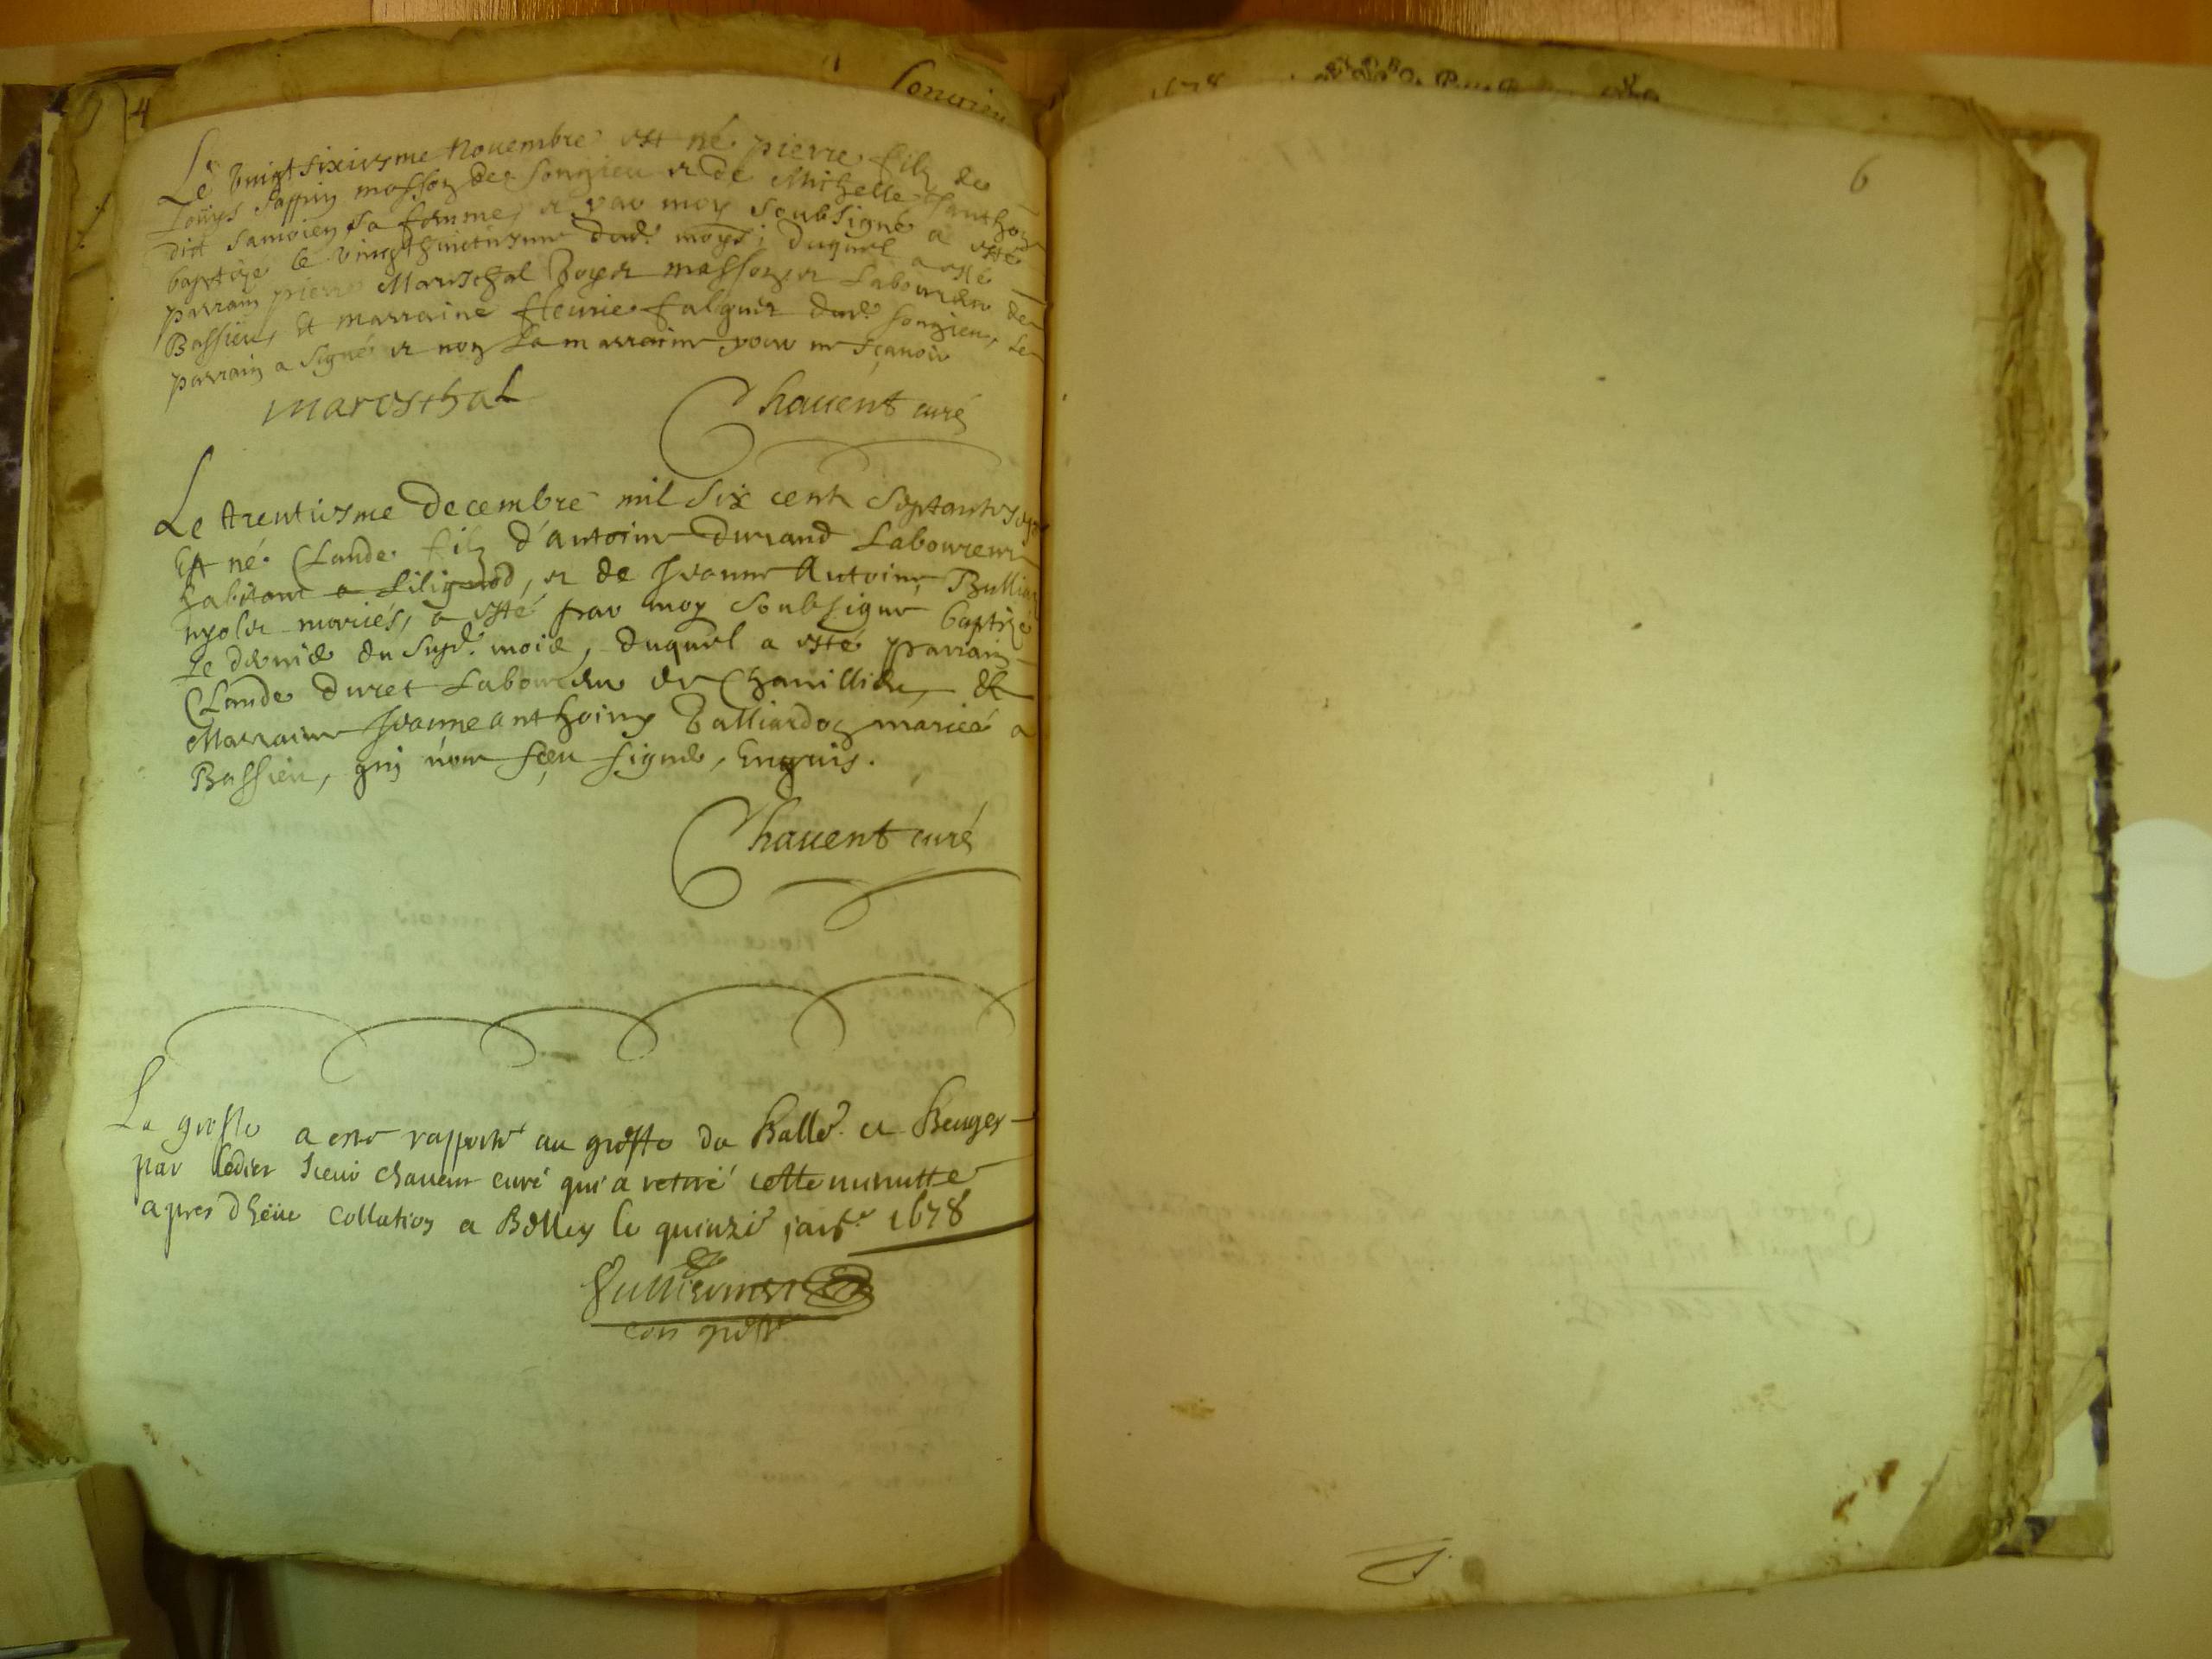 4
Songieu
1678
6
Le vingt sixiesme Novembre est né pierre filz de
Louys masson de Songieu et de Michelle
dict Samoien sa femme, et par moy soubsigné a esté
baptizé le vingthuictiesme dud. moys; duquel a esté
parrain pierre Mareschal masson et Laboureur de
Bassieu, et marraine fleurie falquet dud. Songieu, Le
parrain a signé et non La marraine pour ne sçavoir
mareschal
Chavent curé
Le trentiesme Decembre mil six cent Septante sept
Est né Claude filz d'antoine Durand Laboureur
habitant a Lilignod, et de Jeanne Antoine
mariés, a esté par moy soubsigné baptizé
Le dernier du susd. mois, duquel a esté parrain
Claude Duret Laboureur de Chavillieu, et
Marraine Jeanne anthoine Talliardoz mariée a
Bassieu, qui n'ont sçeu signer, Enquis.
Chavent curé
La grosse a esté rapporté au greffe du Balle. et Beugey
par ledict Sieur Chavent curé qui a retiré cette minutte
apres dheüe Collation a Belley le quinze janv.r 1678
con greff